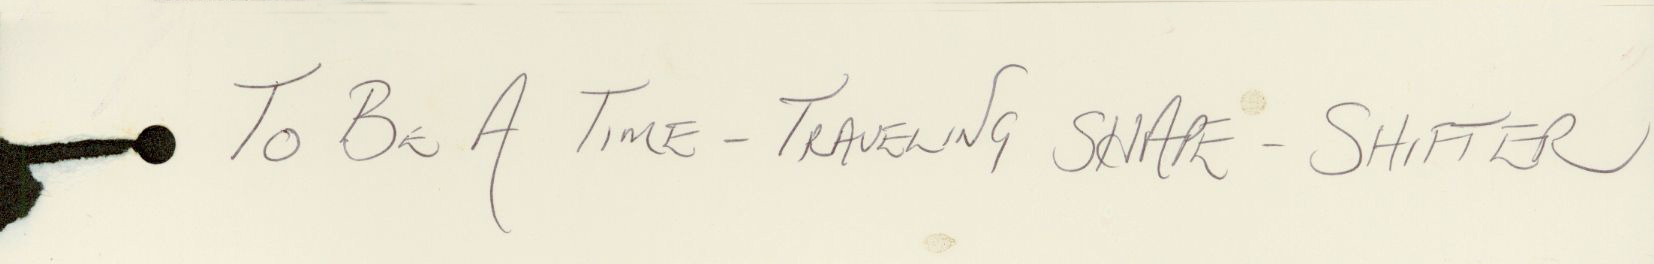 To Be A Time - Traveling SHAPE - Shifter